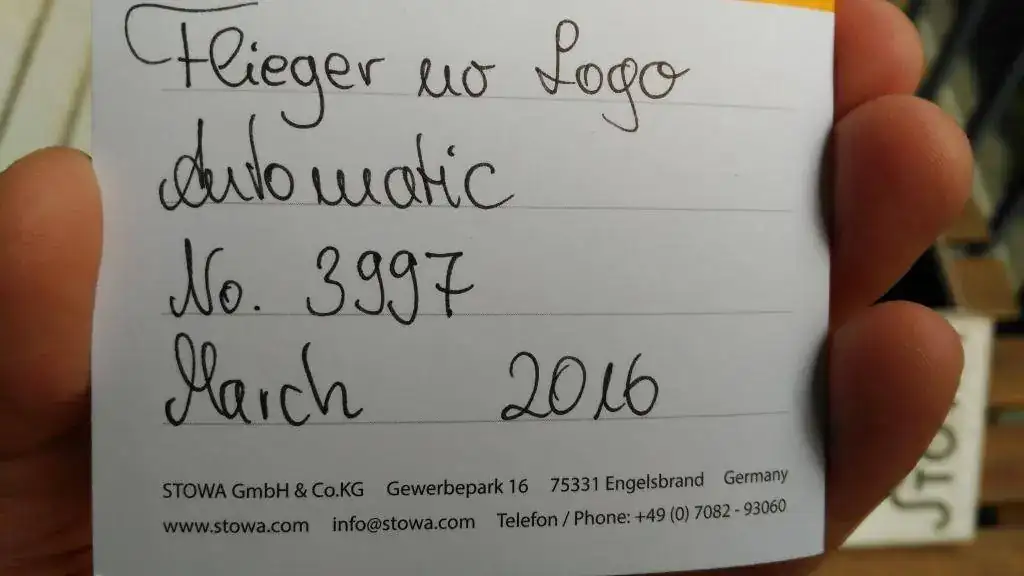 Flieger no Logo
Automatic
No. 3997
March 2016
STOWA GmbH & Co.KG Gewerbepark 16 75331 Engelsbrand Germany
www.stowa.com info@stowa.com Telefon / Phone: +49 (0) 7082 - 93060
STOWA